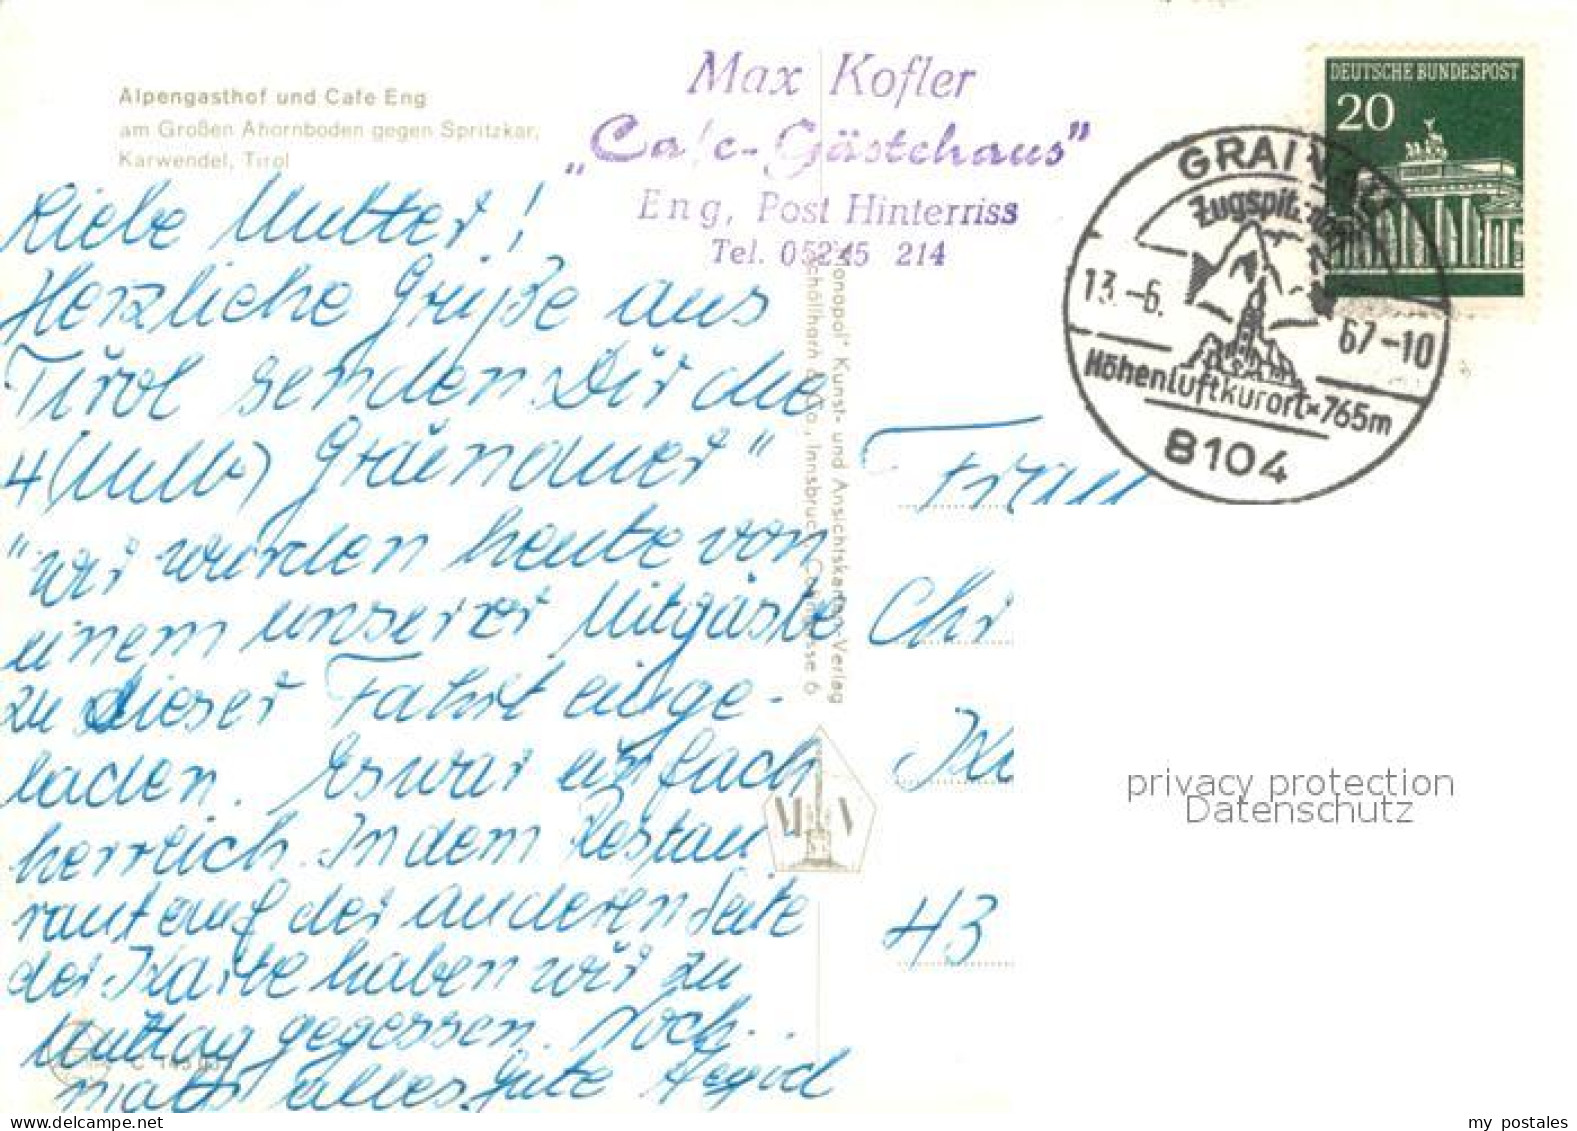 Alpengasthof und Cafe Eng
am Großen Ahornboden gegen Spritzkar,
Karwendel, Tirol
Max Kofler
„Cafe-Gästehaus"
Eng, Post Hinterriss
Tel. 05245 214
DEUTSCHE BUNDESPOST
20
GRAINAU
Zugspitzdorf
13.-6. 67-10
Höhenluftkurort*765m
8104
Liebe Mutter!
Herzliche Grüße aus
Tirol senden Dir die
4 Grainauer"
"Wir wurden heute von
einem unserer Mitgäste
zu dieser Fahrt einge-
laden. Es war einfach
herrlich. In dem Restau-
rant auf der anderen Seite
der Karte haben wir zu
Mittag gegessen. Noch-
mals alles Gute
"Monopol" Kunst- und Ansichtskarten-Verlag
Schöllhorn & Co., Innsbruck, 6
M V
Frau
Chr
43
privacy protection
Datenschutz
my postales